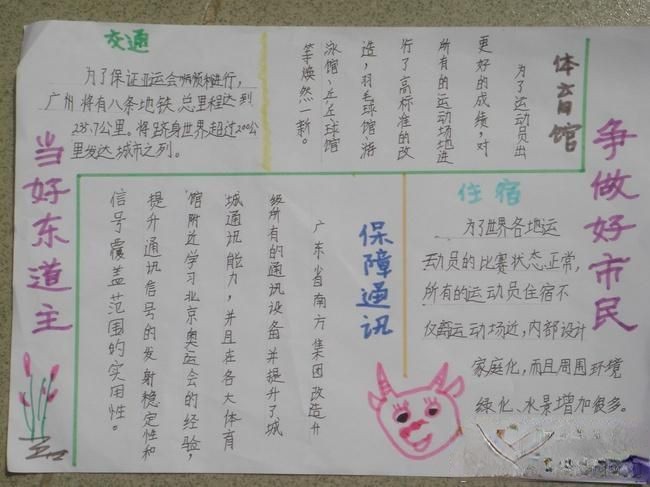 当好东道主
争做好市民
交通
为了保证亚运会顺利进行，
广州将有八条地铁总里程达到
235.7公里。将跻身世界超过200公
里发达城市之列。
体育馆
为了运动员出
更好的成绩，对
所有的运动场地进
行了高标准的改
造，羽毛球馆、游
泳馆、乒乓球馆
等焕然一新。
保障通讯
广东省南方集团改造升
级所有的通讯设备并提升了城
城通讯能力，并且在各大体育
馆附近学习北京奥运会的经验，
提升通讯信号的发射稳定性和
信号覆盖范围的实用性。
住宿
为了世界各地运
动员的比赛状态正常，
所有的运动员住宿不
仅离运动场近，内部设计
家庭化，而且周围环境
绿化、水景增加很多。